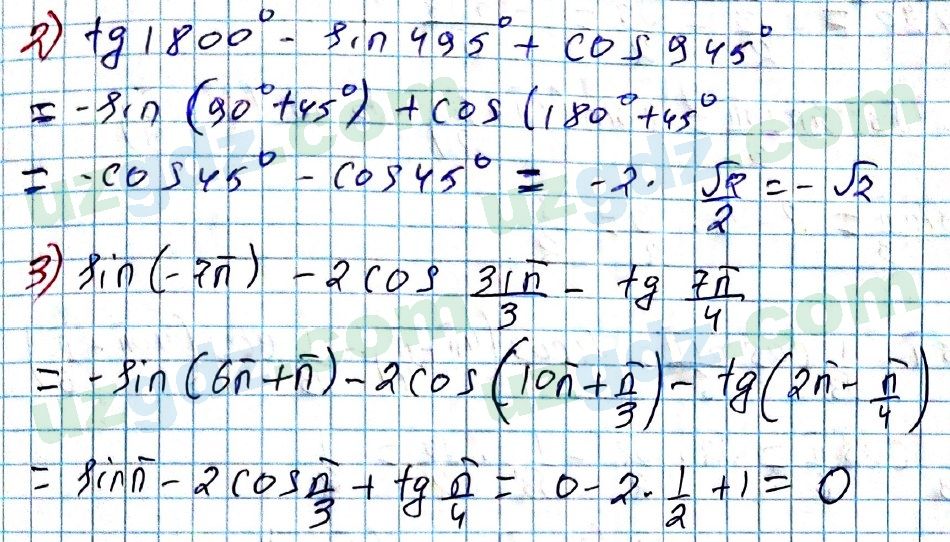 2) tg 1800° - sin 495° + cos 945°
= -sin (90° + 45°) + cos (180° + 45°
= -cos 45° - cos 45° = -2 · √2/2 = -√2
3) sin(-7π) - 2 cos 31π/3 - tg 7π/4
= -sin(6π + π) - 2 cos(10π + π/3) - tg(2π - π/4)
= sin π - 2 cos π/3 + tg π/4 = 0 - 2 · 1/2 + 1 = 0
uzgdz.com